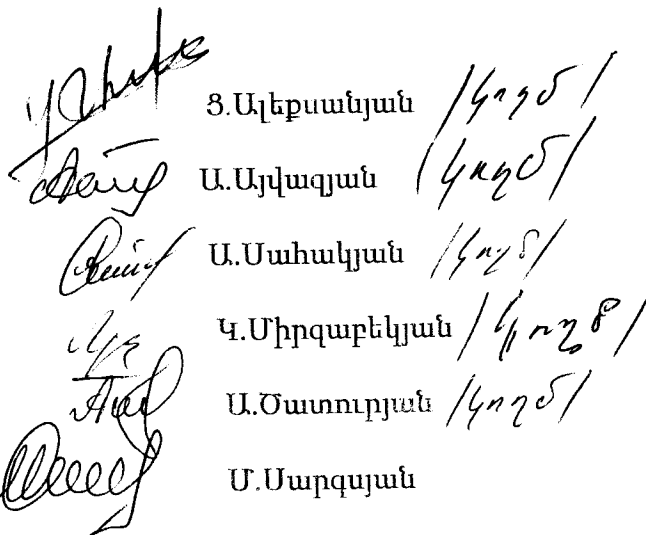 Ց.Ալեքսանյան /կողմ/
Ա.Այվազյան /կողմ/
Ա.Սահակյան /կողմ/
Կ.Միրզաբեկյան /կողմ/
Ա.Ծատուրյան /կողմ/
Մ.Սարգսյան